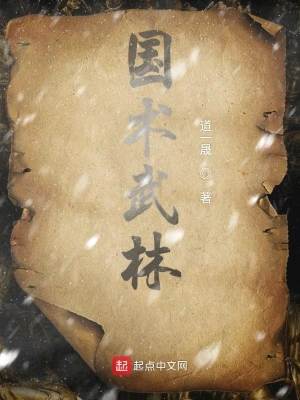 国术武林
道一晟◎著
起 起点中文网